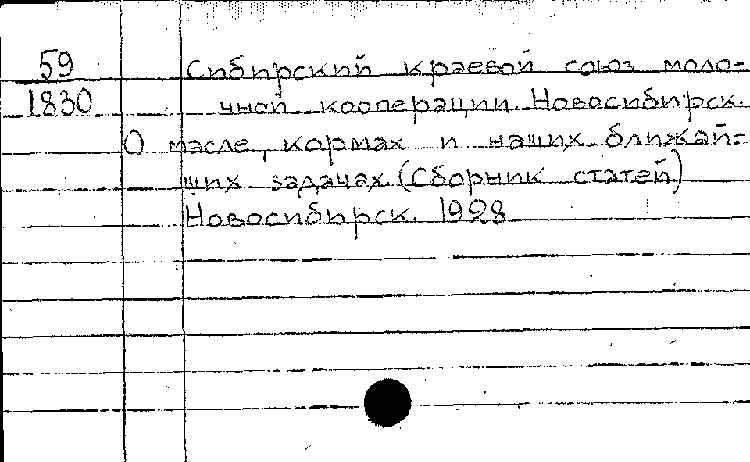 59 Сибирский краевой союз моло-
1830 чной кооперации. Новосибирск.
О масле, кормах и наших ближай-
ших задачах. (Сборник статей)
Новосибирск. 1928